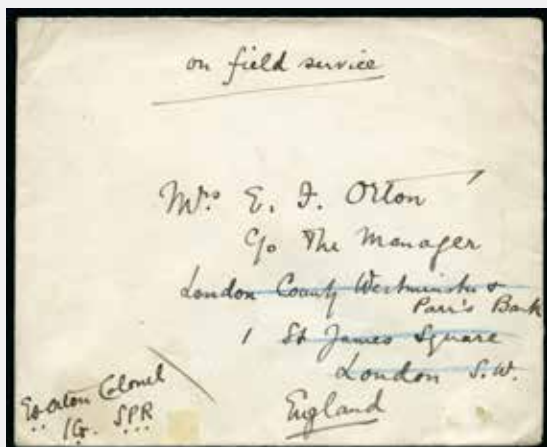 on field service
Mrs E. F. Orton
C/o The Manager
London County Westminster &
Parr's Bank
1 St James Square
London S.W.
England
Orton Colonel
IG. SPR